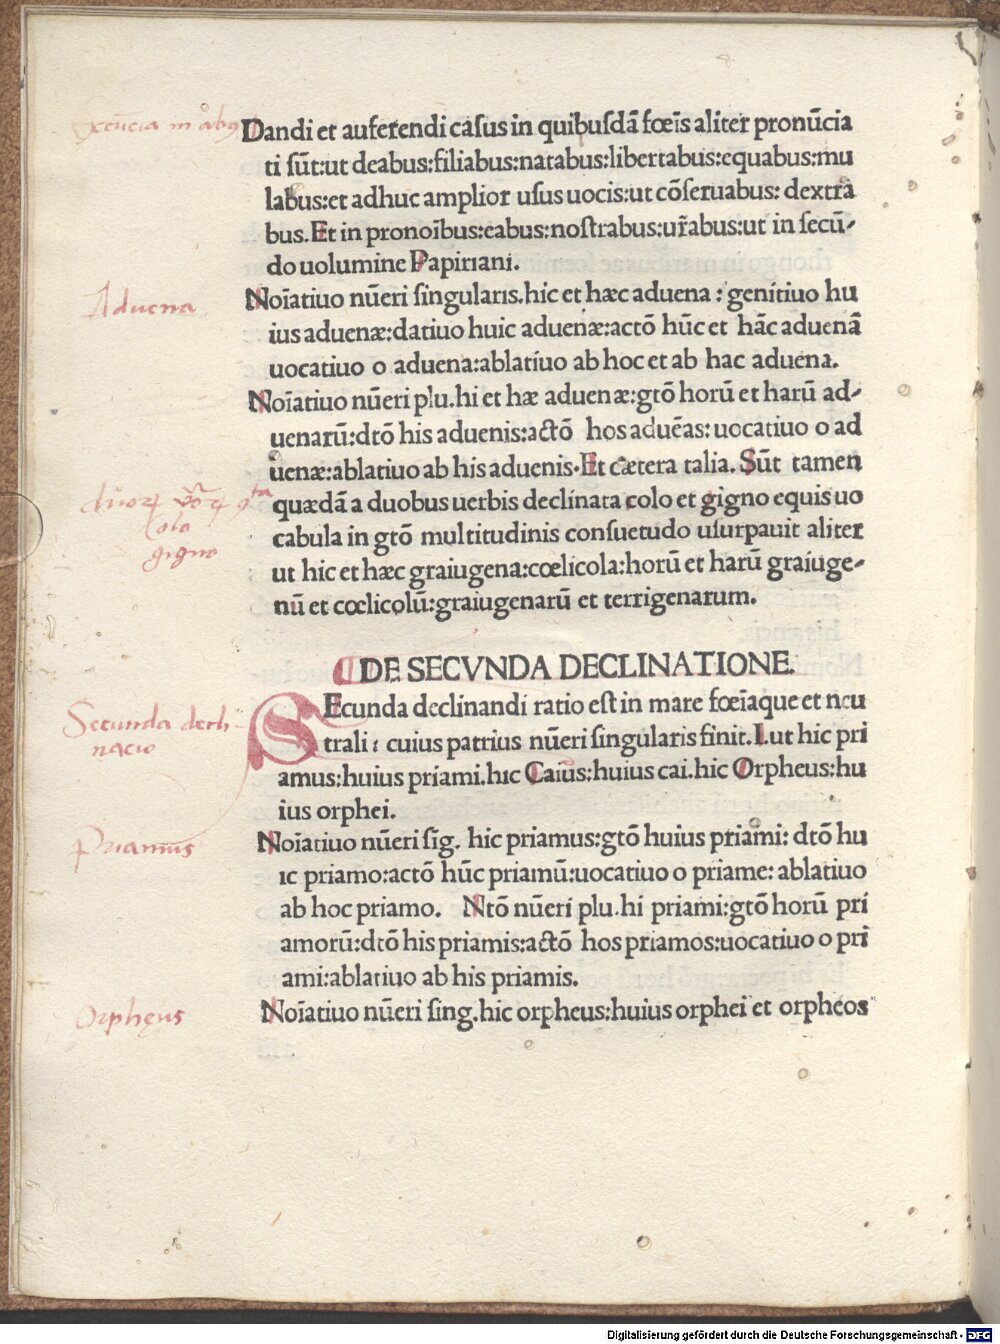 Dandi et auferendi casus in quibusdã fœīs aliter pronũcia
ti sũt:ut deabus:filiabus:natabus:libertabus:equabus:mu
labus:et adhuc amplior usus uocis:ut cõseruabus: dextra
bus. Et in pronoībus:eabus:nostrabus:ur̃abus:ut in secũ-
do uolumine Papiriani.
Aduena
Noīatiuo nũeri singularis.hic et hæc aduena : genitiuo hu
ius aduenæ:datiuo huic aduenæ:actõ hũc et hãc aduenã
uocatiuo o aduena:ablatiuo ab hoc et ab hac aduena.
Noīatiuo nũeri plu.hi et hæ aduenæ:gtõ horũ et harũ ad-
uenarũ:dtõ his aduenis:actõ hos aduẽas:uocatiuo o ad
uenæ:ablatiuo ab his aduenis. Et cætera talia. Sũt tamen
quædã a duobus uerbis declinata colo et gigno equis uo
cabula in gtõ multitudinis consuetudo usurpauit aliter
colo
gigno
ut hic et hæc graiugena:cœlicola:horũ et harũ graiuge-
nũ et cœlicolũ:graiugenarũ et terrigenarum.
DE SECVNDA DECLINATIONE.
Secunda decli-
nacio
SEcunda declinandi ratio est in mare fœīaque et neu
trali : cuius patrius nũeri singularis finit.I.ut hic pri
amus:huius priami.hic Caius:huius cai.hic Orpheus:hu
ius orphei.
Priamus
Noīatiuo nũeri sīg. hic priamus:gtõ huius priami: dtõ hu
ic priamo:actõ hũc priamũ:uocatiuo o priame: ablatiuo
ab hoc priamo. Ntõ nũeri plu.hi priami:gtõ horũ pri
amorũ:dtõ his priamis:actõ hos priamos:uocatiuo o pri
ami:ablatiuo ab his priamis.
Orpheus
Noīatiuo nũeri sing.hic orpheus:huius orphei et orpheos
Digitalisierung gefördert durch die Deutsche Forschungsgemeinschaft - DFG